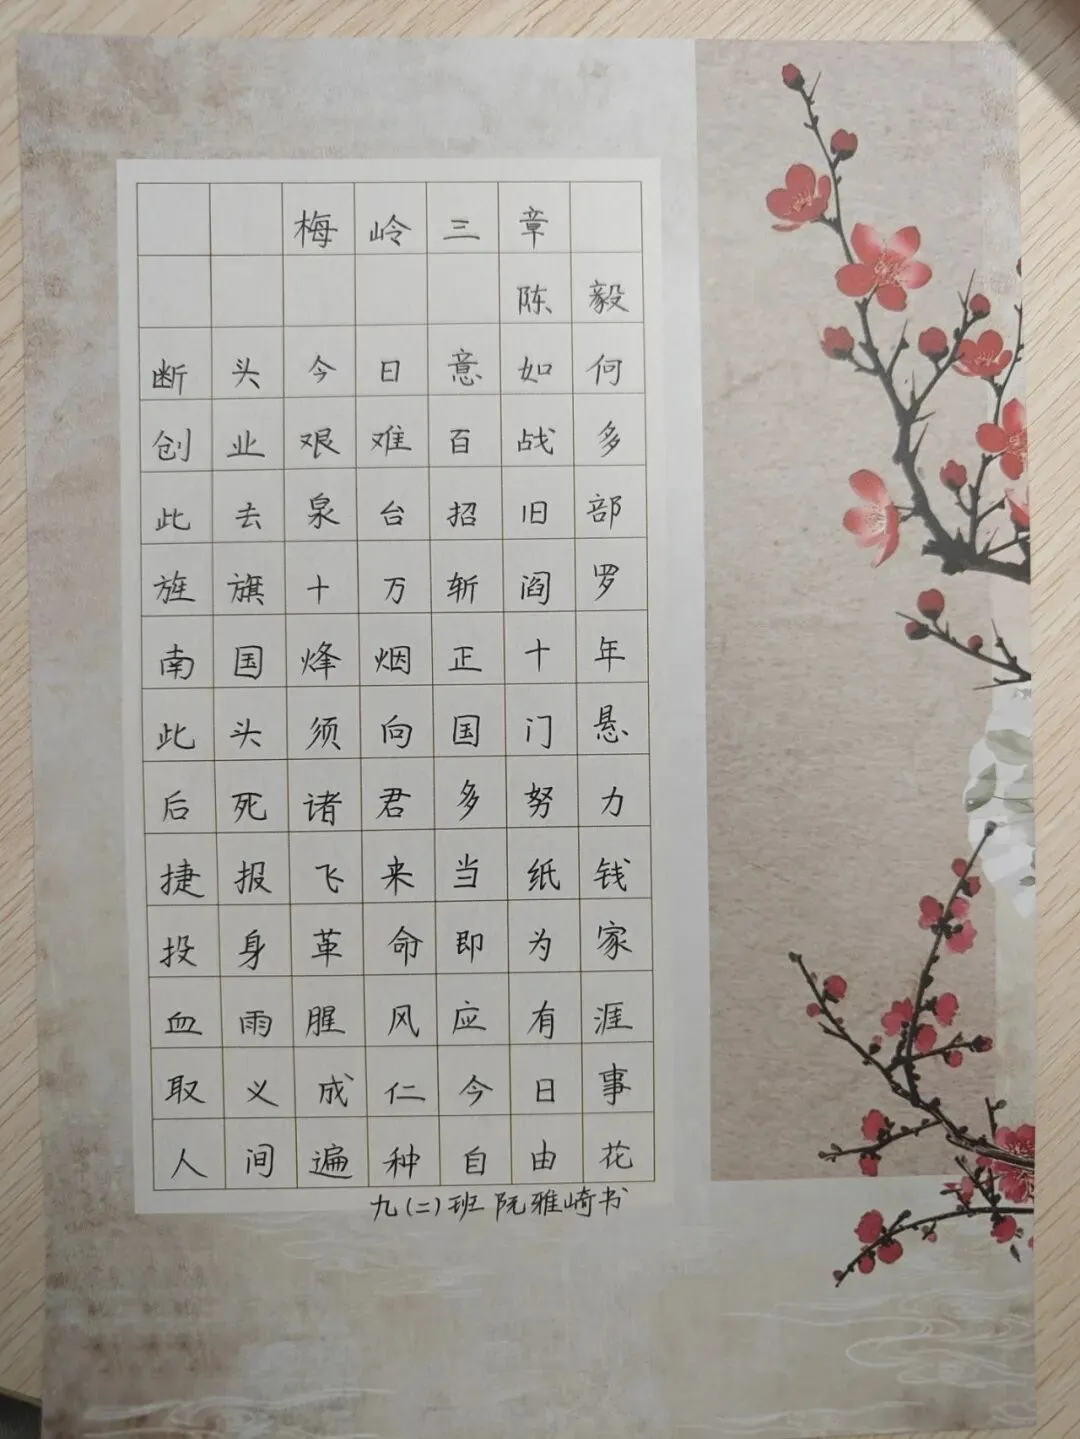 梅岭三章
陈毅
断头今日意如何
创业艰难百战多
此去泉台招旧部
旌旗十万斩阎罗
南国烽烟正十年
此头须向国门悬
后死诸君多努力
捷报飞来当纸钱
投身革命即为家
血雨腥风应有涯
取义成仁今日事
人间遍种自由花
九(二)班 阮雅崎书